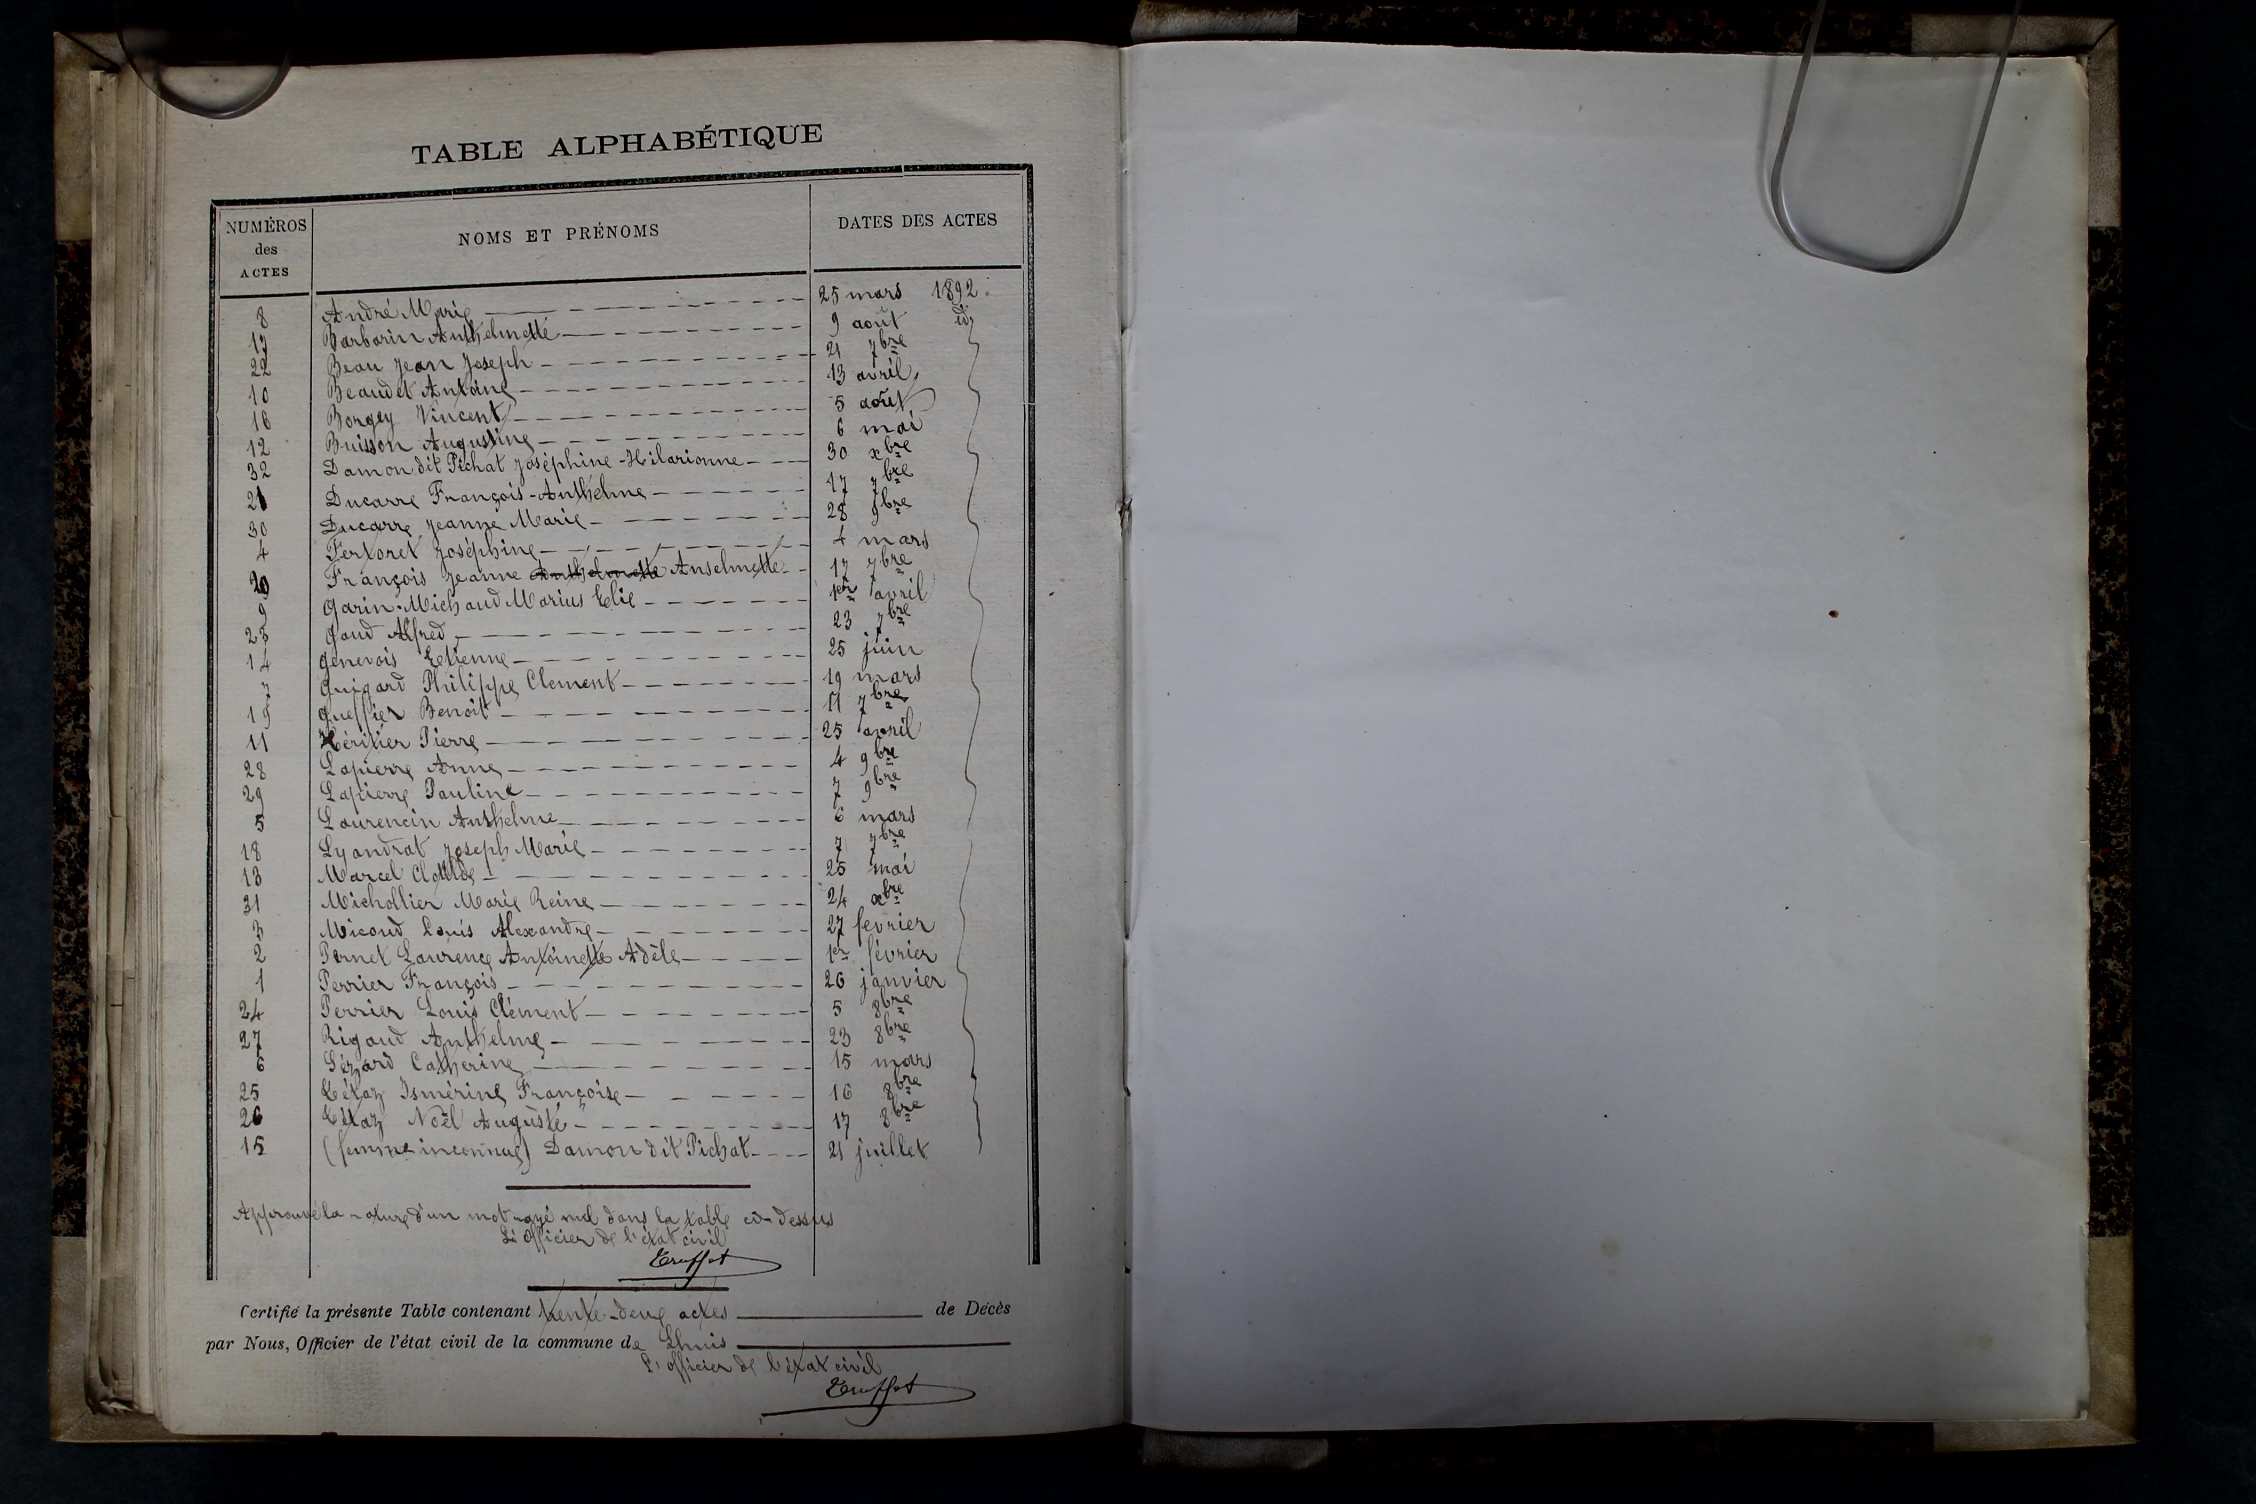 TABLE ALPHABÉTIQUE
NUMÉROS des ACTES NOMS ET PRÉNOMS DATES DES ACTES
8 André Marie 25 mars 1892
17 Barbarin Anthelmette 9 août id
22 Beau Jean Joseph 21 7bre
10 Beaudet Antoine 13 avril
16 Borgey Vincent 5 août
12 Buisson Augustine 6 mai
32 Damon dit Pichat Joséphine-Hilarionne 30 xbre
21 Ducarre François-Anthelme 17 7bre
30 Ducarre Jeanne Marie 28 9bre
4 Fertoret Joséphine 4 mars
20 François Jeanne Anthelmette Anselmette 17 7bre
9 Garin-Michaud Marius Elie 1er avril
23 Gaud Alfred 23 7bre
14 Genevois Etienne 25 juin
7 Guigard Philippe Clement 19 mars
19 Gueffier Benoit 11 7bre
11 Héritier Pierre 25 avril
28 Lapierre Anne 4 9bre
29 Lapierre Pauline 7 9bre
5 Laurencin Anthelme 6 mars
18 Lyandrat Joseph Marie 7 7bre
13 Marcel Clotilde 25 mai
31 Michollier Marie Reine 24 xbre
3 Micoud Louis Alexandre 27 fevrier
2 Pernet Laurence Antoinette Adèle 1er février
1 Perrier François 26 janvier
24 Perrier Louis Clément 5 8bre
27 Rigaud Anthelme 23 8bre
6 Sézard Catherine 15 mars
25 Tétaz Ismérine Françoise 16 8bre
26 Tétaz Noël Auguste 17 8bre
15 (femme inconnue) Damon dit Pichat 21 juillet
Approuvé la rature d'un mot rayé nul dans la table ci-dessus
L'officier de l'état civil
Truffet
Certifié la présente Table contenant trente-deux actes de Décès
par Nous, Officier de l'état civil de la commune de Lhuis
L'officier de l'état civil
Truffet